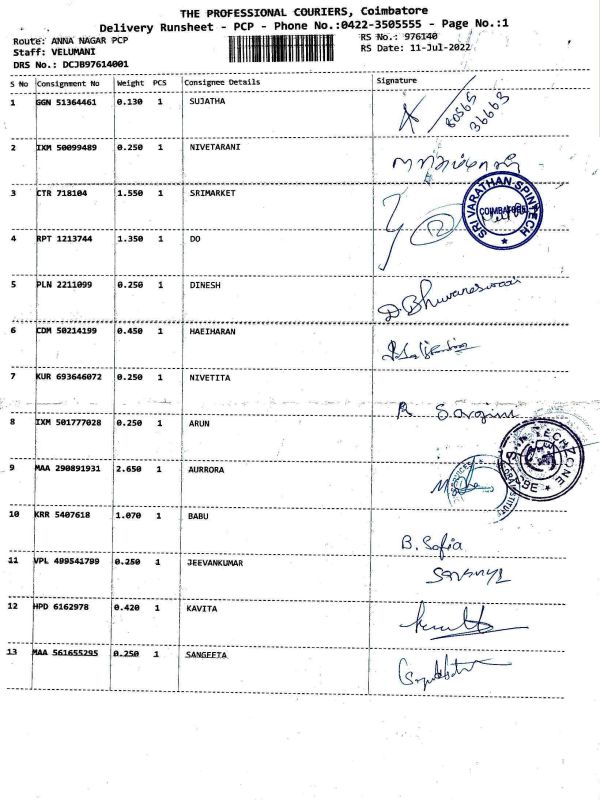 THE PROFESSIONAL COURIERS, Coimbatore
Delivery Runsheet - PCP - Phone No.:0422-3505555 - Page No.:1
Route: ANNA NAGAR PCP
Staff: VELUMANI
DRS No.: DCJB97614001
RS No.: 976140
RS Date: 11-Jul-2022
S No Consignment No Weight PCS Consignee Details Signature
1 GGN 51364461 0.130 1 SUJATHA
80565
36663
2 IXM 50099489 0.250 1 NIVETARANI
3 CTR 718104 1.550 1 SRIMARKET
SRI VARATHAN SPINTECH
COIMBATORE
4 RPT 1213744 1.350 1 DO
5 PLN 2211099 0.250 1 DINESH
D Bhuvaneswari
6 CDM 50214199 0.450 1 HAEIHARAN
7 KUR 693646072 0.250 1 NIVETITA
R Sargini
8 IXM 501777028 0.250 1 ARUN
9 MAA 290891931 2.650 1 AURRORA
10 KRR 5407618 1.070 1 BABU
B. Sofia
11 VPL 499541799 0.250 1 JEEVANKUMAR
12 HPD 6162978 0.420 1 KAVITA
13 MAA 561655295 0.250 1 SANGEETA